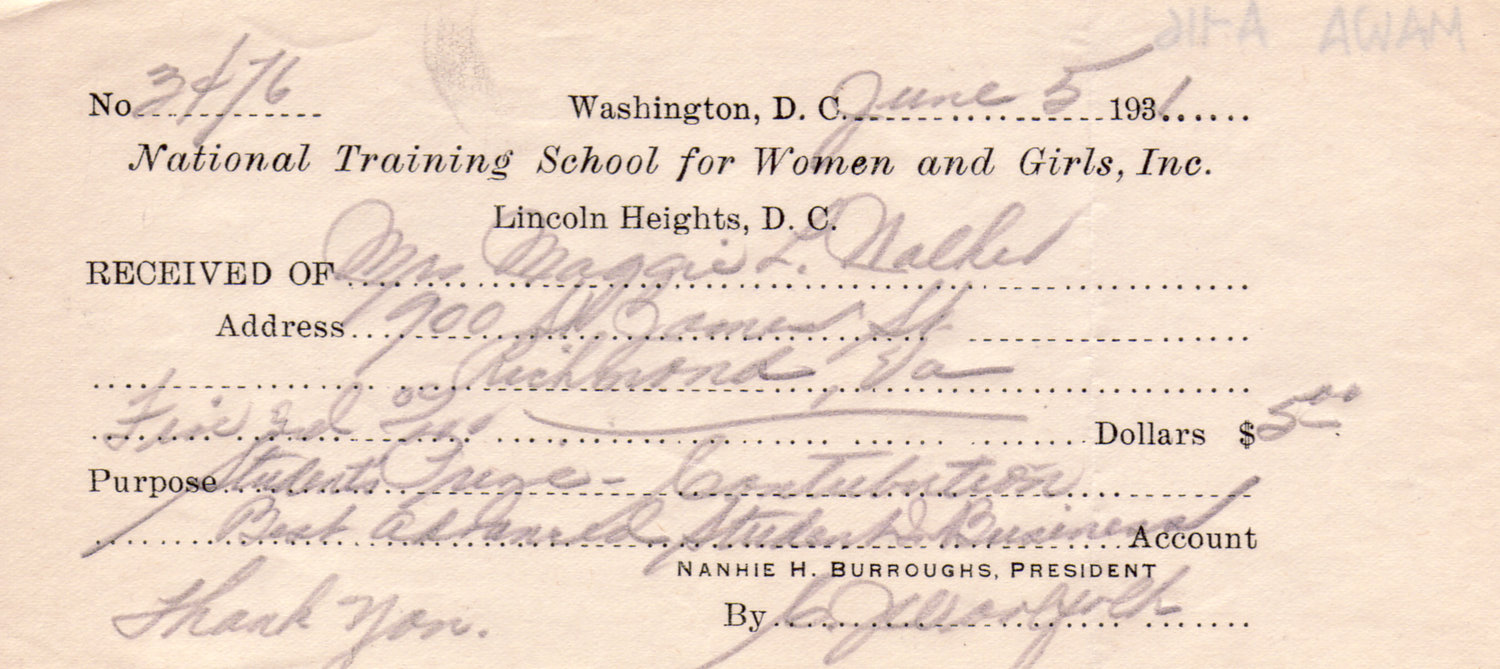 No 3476 Washington, D. C. June 5 1931
National Training School for Women and Girls, Inc.
Lincoln Heights, D. C.
RECEIVED OF Mrs Maggie L. Walker
Address 900 St. James St.
Richmond, Va
Five and 00 Dollars $5.00
Purpose Students Prize - Contribution
Best Advanced Student Business Account
NANHIE H. BURROUGHS, PRESIDENT
Thank You. By